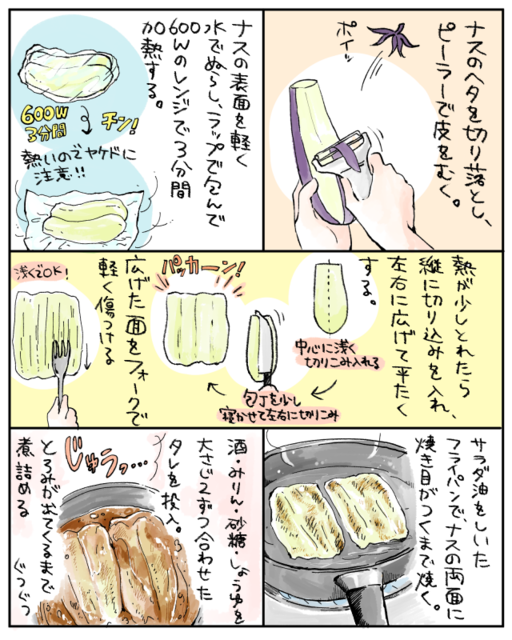 ナスのヘタを切り落とし、
ピーラーで皮をむく。
ポイッ
ナスの表面を軽く
水でぬらし、ラップで包んで
600Wのレンジで3分間
加熱する。
600W
3分間
チン!
熱いのでヤケドに
注意!!
熱が少しとれたら
縦に切り込みを入れ、
左右に広げて平たく
する。
中心に浅く
切りこみ入れる
包丁を少し
寝かせて左右に切りこみ
パッカーン!
広げた面をフォークで
軽く傷つける
浅くでOK!
サラダ油をしいた
フライパンで、ナスの両面に
焼き目がつくまで焼く。
酒・みりん・砂糖・しょうゆを
大さじ2ずつ合わせた
タレを投入。
とろみが出てくるまで
煮詰める
じゅうッ…
ぐつぐつ